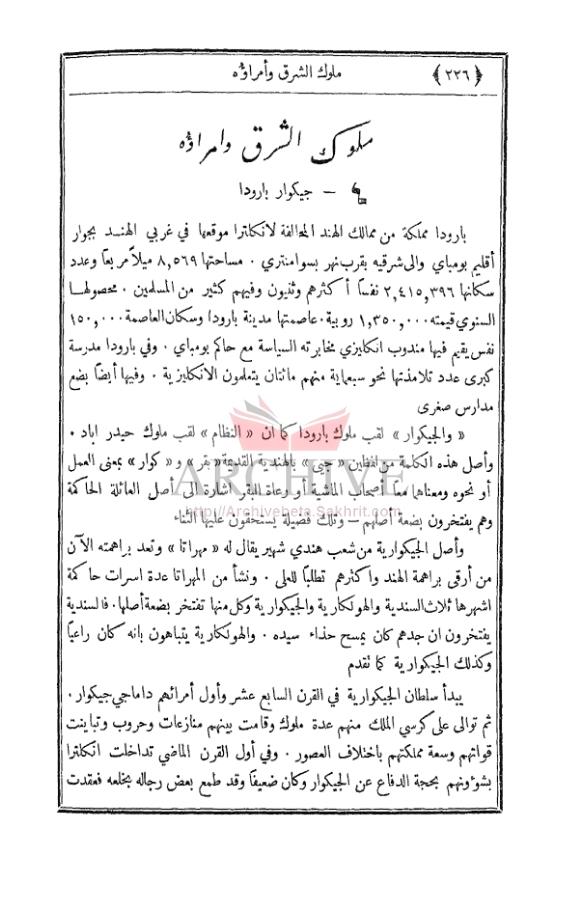 ﴿ ٢٢٦ ﴾ ملوك الشرق وأمراؤه
ملوك الشرق وامراؤه
٩ - جيكوار بارودا
بارودا مملكة من ممالك الهند المحالفة لانكلترا موقعها في غربي الهند بجوار
أقليم بومباي والى شرقيه بقرب نهر بسوامنتري . مساحتها ٨,٥٦٩ ميلاً مربعاً وعدد
سكانها ٢,٤١٥,٣٩٦ نفساً أكثرهم وثنيون وفيهم كثير من المسلمين . محصولها
السنوي قيمته ١,٣٥٠,٠٠٠ روبية . عاصمتها مدينة بارودا وسكان العاصمة ١٥٠,٠٠٠
نفس يقيم فيها مندوب انكليزي مخابرته السياسة مع حاكم بومباي . وفي بارودا مدرسة
كبرى عدد تلامذتها نحو سبعماية منهم مائتان يتعلمون الانكليزية . وفيها أيضاً بضع
مدارس صغرى
« والجيكوار » لقب ملوك بارودا كما ان « النظام » لقب ملوك حيدر اباد .
وأصل هذه الكلمة من لفظين « جي » بالهندية القديمة « بقر » و « كوار » بمعنى العمل
أو نحوه ومعناهما معاً أصحاب الماشية أو رعاة البقر اشارة الى أصل العائلة الحاكمة
وهم يفتخرون بضعة أصلهم – وتلك فضيلة يستحقون عليها الثناء
وأصل الجيكوارية من شعب هندي شهير يقال له « مهراتا » وتعد براهمته الآن
من أرقى براهمة الهند وأكثرهم تطلباً للعلى . ونشأ من المهراتا عدة اسرات حاكمة
اشهرها ثلاث السندية والهولكارية والجيكوارية وكل منها تفتخر بضعة أصلها . فالسندية
يفتخرون ان جدهم كان يمسح حذاء سيده . والهولكارية يتباهون بانه كان راعياً
وكذلك الجيكوارية كما تقدم
يبدأ سلطان الجيكوارية في القرن السابع عشر وأول أمرائهم داماجي جيكوار .
ثم توالى على كرسي الملك منهم عدة ملوك وقامت بينهم منازعات وحروب وتباينت
قواتهم وسعة مملكتهم باختلاف العصور . وفي أول القرن الماضي تداخلت انكلترا
بشؤونهم بحجة الدفاع عن الجيكوار وكان ضعيفاً وقد طمع بعض رجاله بخلعه فعقدت
ARCHIVE
http://Archivebeta.Sakhrit.com